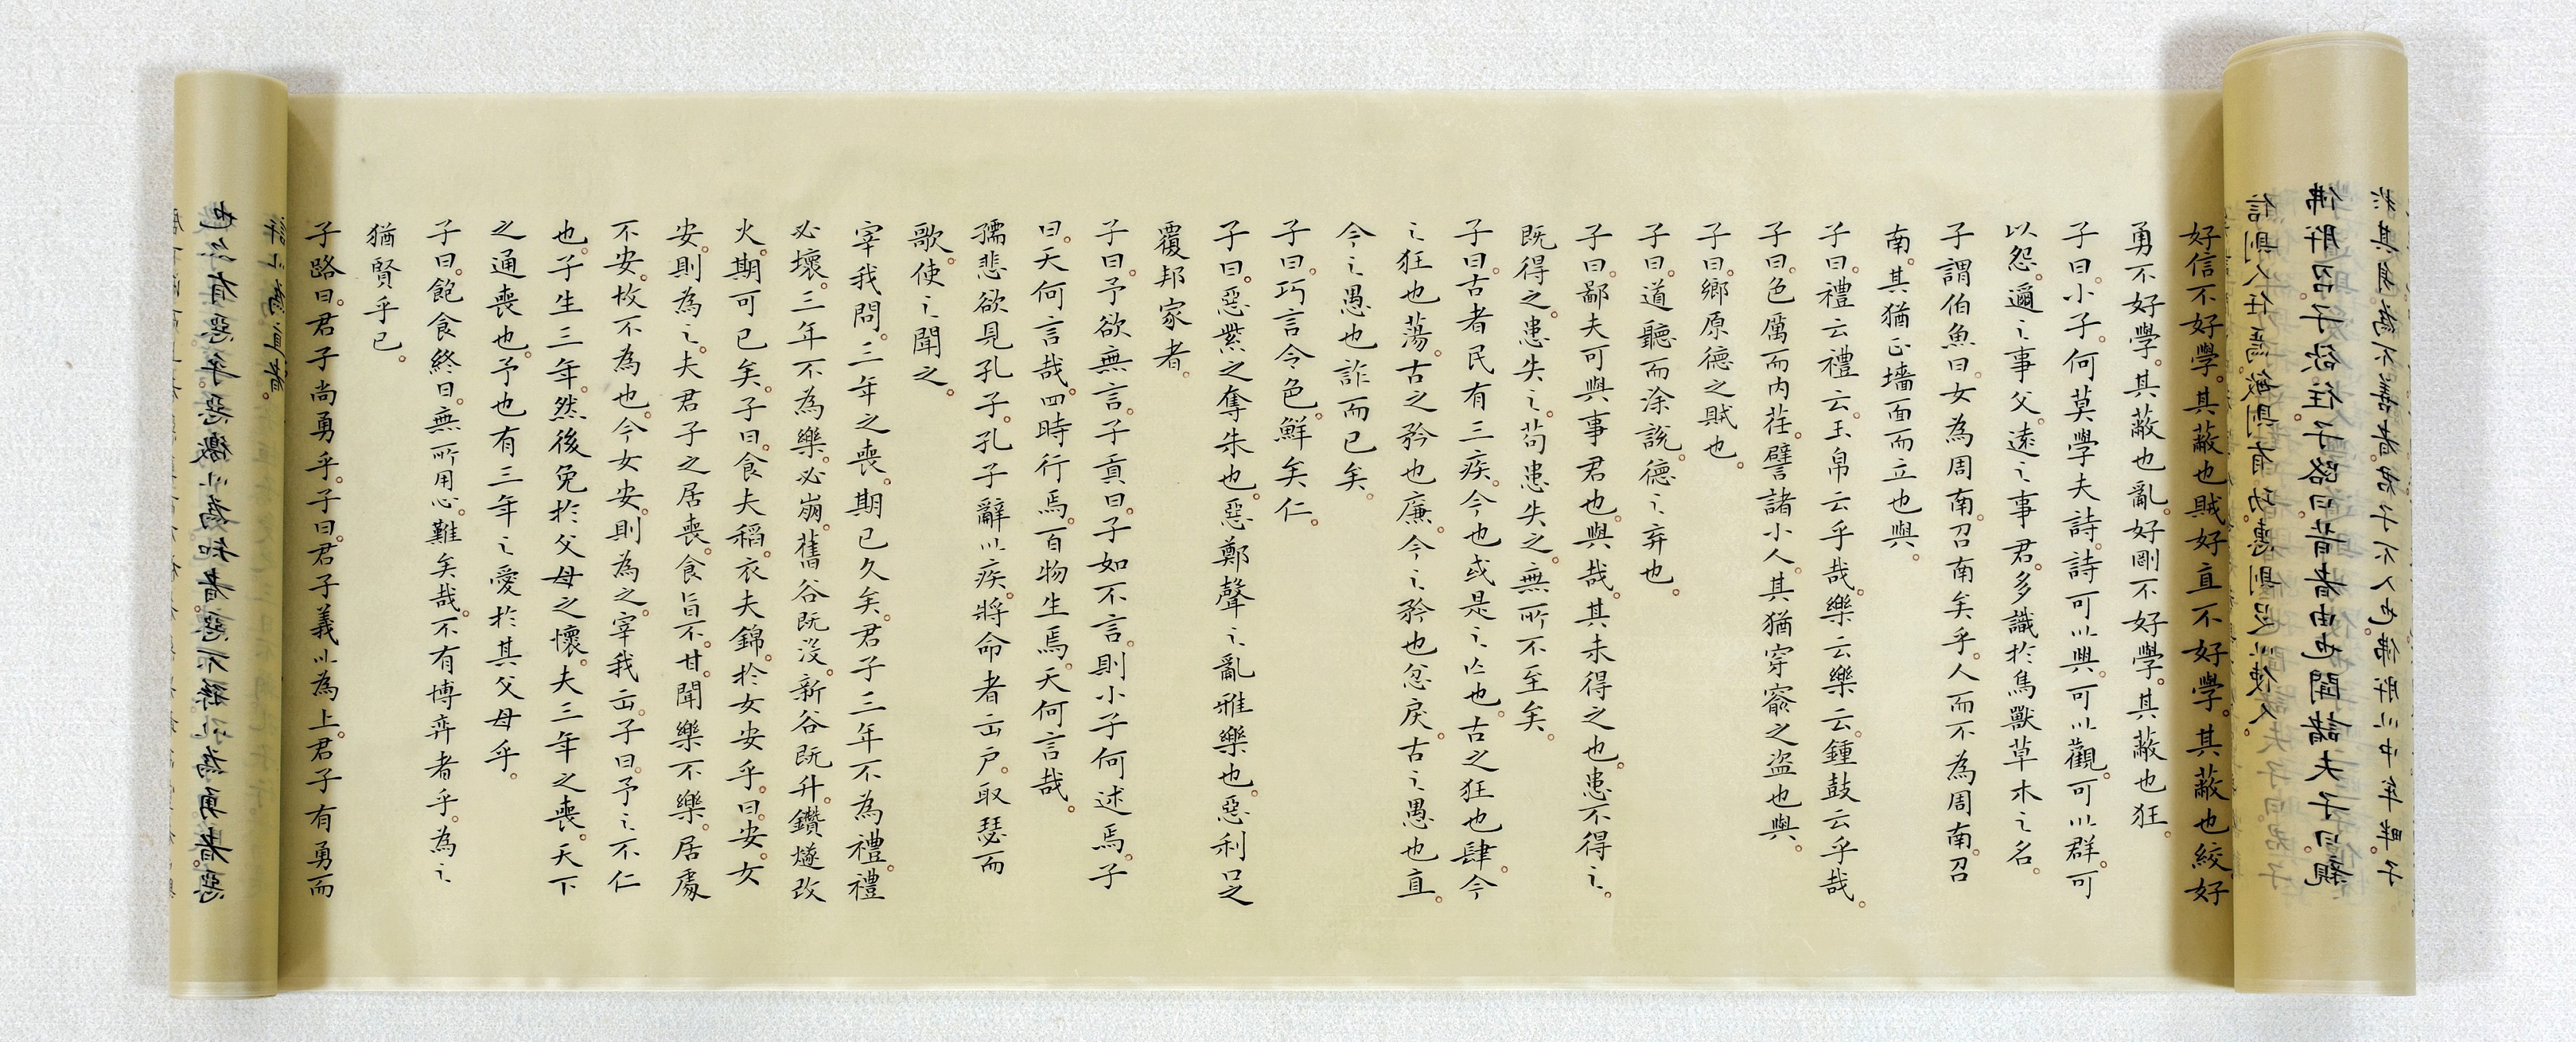 信則人任焉。敏則有功。惠則足以使人。
佛肸召。子欲往。子路曰。昔者由也聞諸夫子曰。親
於其身為不善者。君子不入也。佛肸以中牟畔。子
好信不好學。其蔽也賊。好直不好學。其蔽也絞。好
勇不好學。其蔽也亂。好剛不好學。其蔽也狂。
子曰。小子。何莫學夫詩。詩可以興。可以觀。可以群。可
以怨。邇之事父。遠之事君。多識於鳥獸草木之名。
子謂伯魚曰。女為周南。召南矣乎。人而不為周南。召
南。其猶正墻面而立也與。
子曰。禮云禮云。玉帛云乎哉。樂云樂云。鍾鼓云乎哉。
子曰。色厲而內荏。譬諸小人。其猶穿窬之盜也與。
子曰。鄉原德之賊也。
子曰。道聽而涂說。德之弃也。
子曰。鄙夫可與事君也與哉。其未得之也。患不得之。
既得之。患失之。苟患失之。無所不至矣。
子曰。古者民有三疾。今也或是之亡也。古之狂也肆。今
之狂也蕩。古之矜也廉。今之矜也忿戾。古之愚也直。
今之愚也詐而已矣。
子曰。巧言令色。鮮矣仁。
子曰。惡紫之奪朱也。惡鄭聲之亂雅樂也。惡利口之
覆邦家者。
子曰。予欲無言。子貢曰。子如不言。則小子何述焉。子
曰。天何言哉。四時行焉。百物生焉。天何言哉。
孺悲欲見孔子。孔子辭以疾。將命者出戶。取瑟而
歌。使之聞之。
宰我問。三年之喪。期已久矣。君子三年不為禮。禮
必壞。三年不為樂。必崩。舊谷既沒。新谷既升。鑽燧改
火。期可已矣。子曰。食夫稻。衣夫錦。於女安乎。曰。安。女
安。則為之。夫君子之居喪。食旨不甘。聞樂不樂。居處
不安。故不為也。今女安。則為之。宰我出。子曰。予之不仁
也。子生三年。然後免於父母之懷。夫三年之喪。天下
之通喪也。予也有三年之愛於其父母乎。
子曰。飽食終日。無所用心。難矣哉。不有博弈者乎。為之
猶賢乎已。
子路曰。君子尚勇乎。子曰。君子義以為上。君子有勇而
也亦有惡乎。惡徼以為知者。惡不孫以為勇者。惡
訐以為直者。